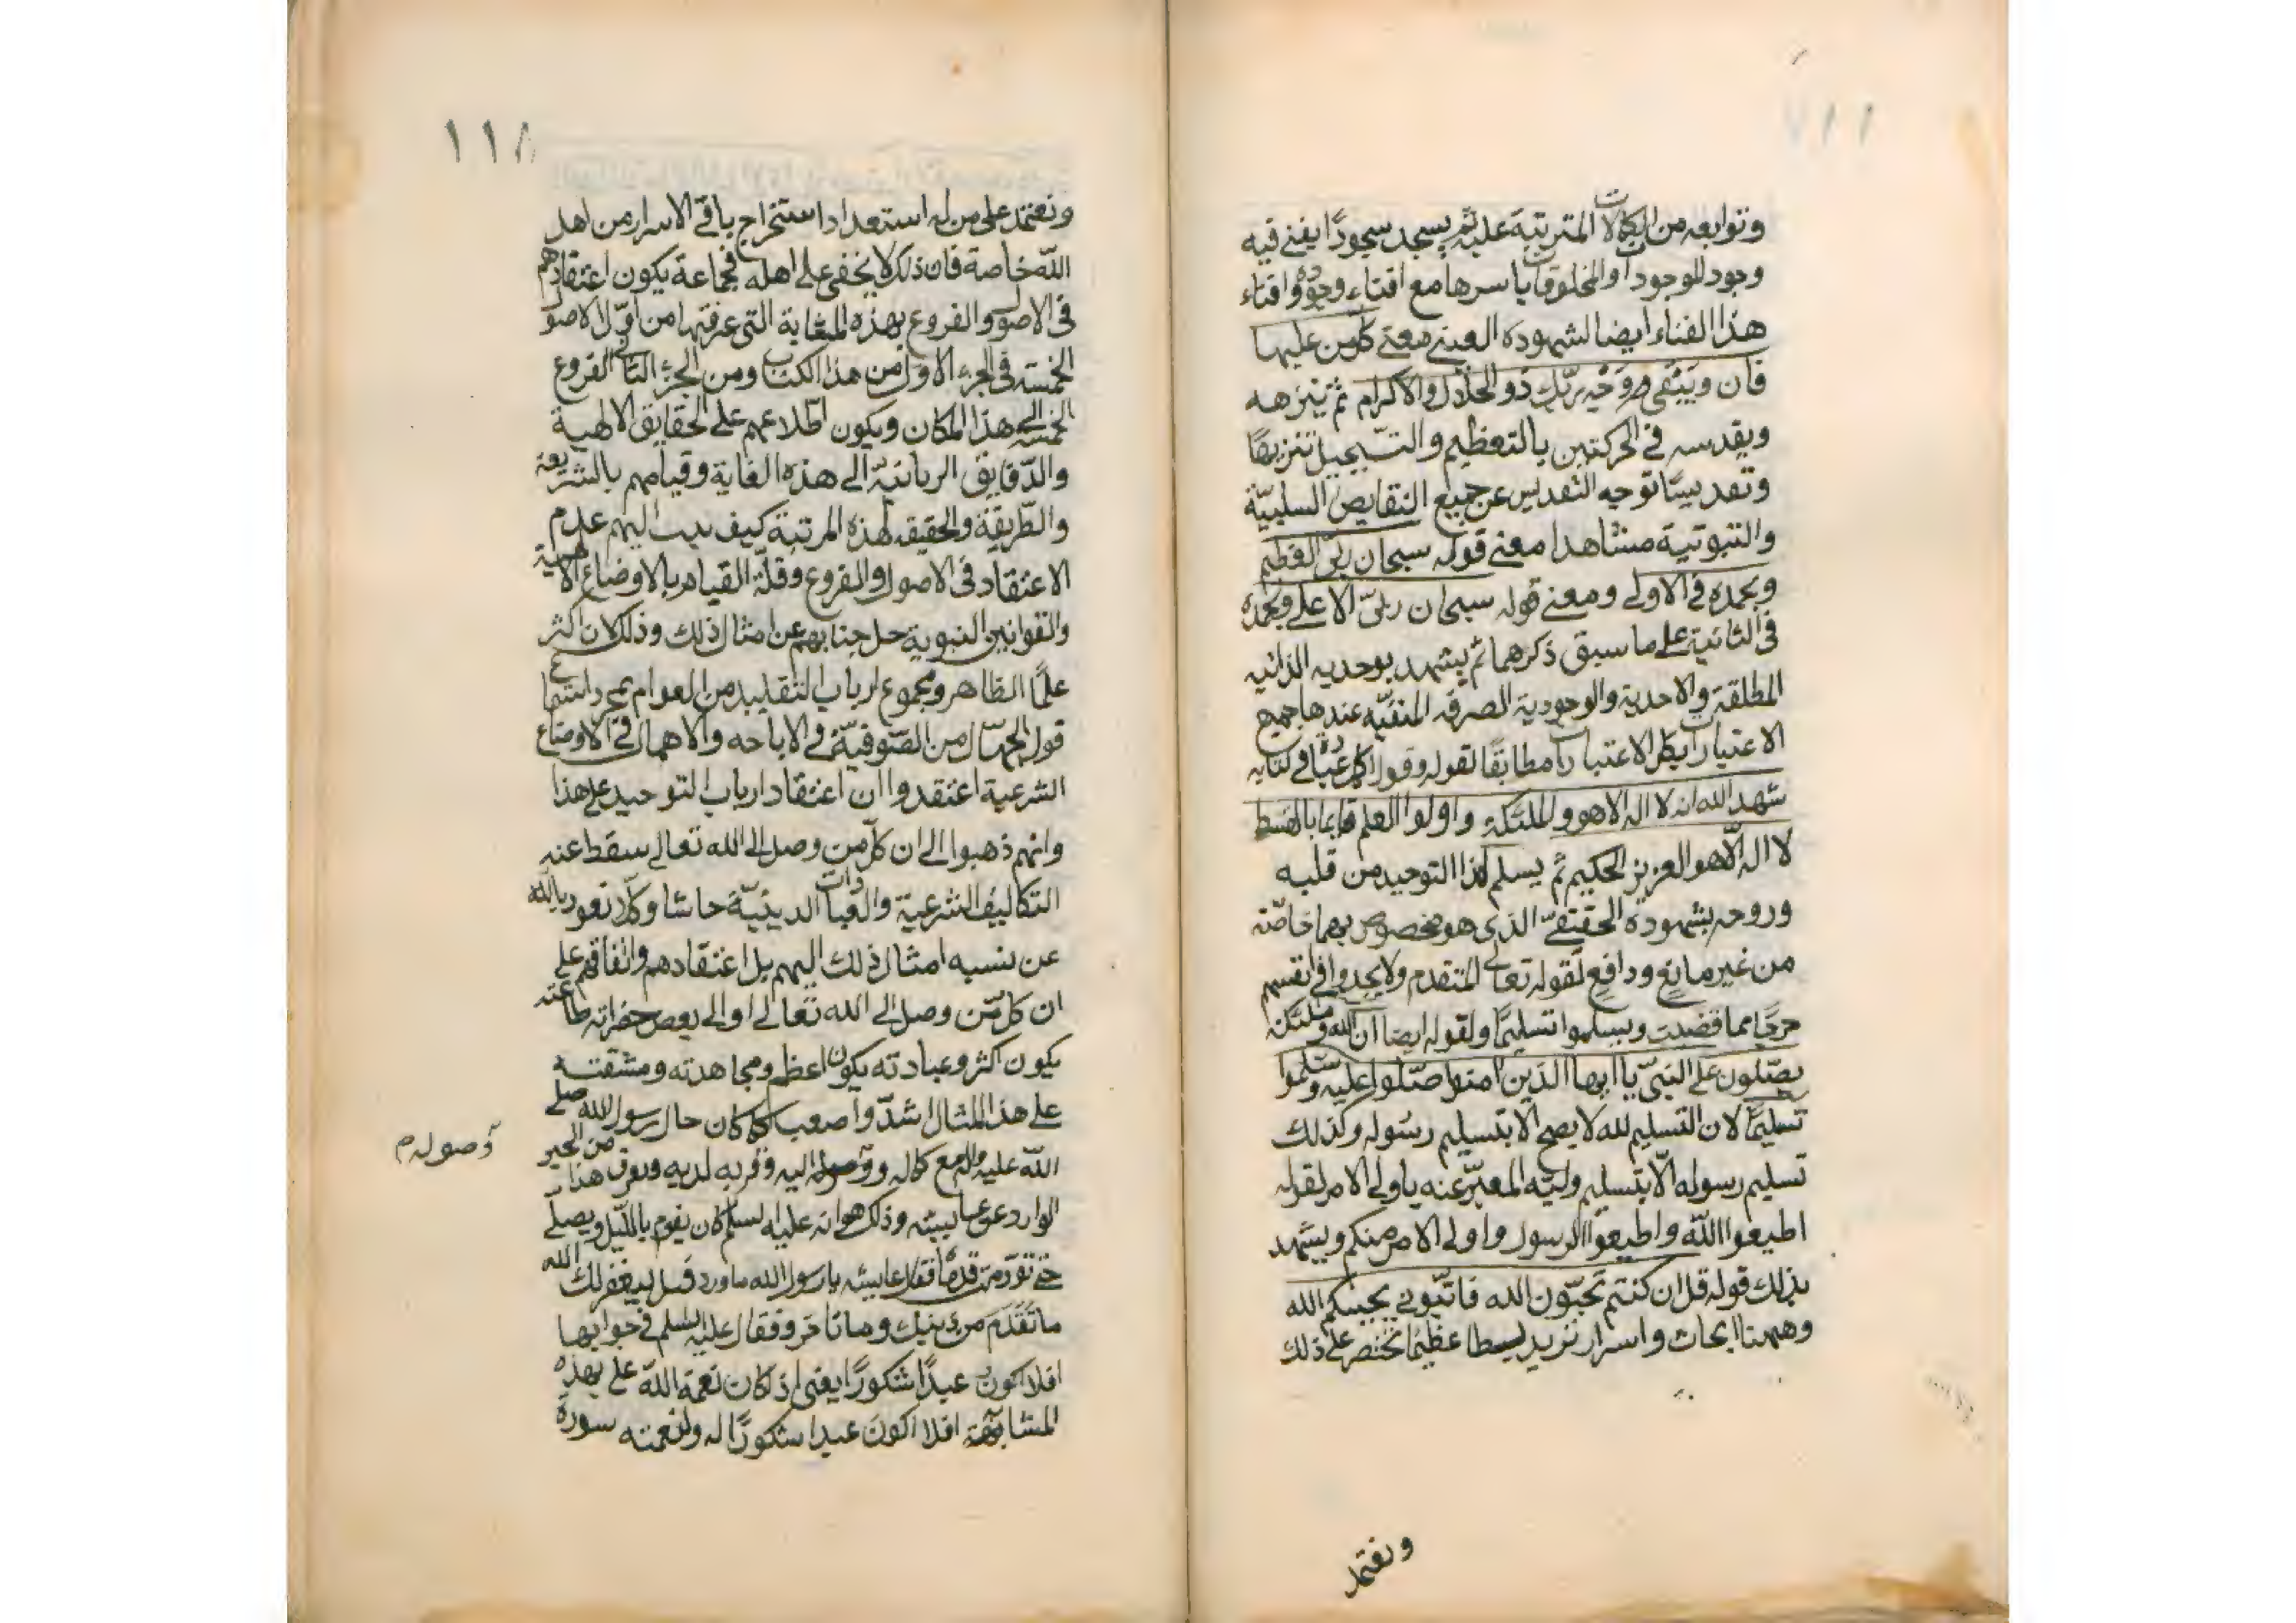 ١١٧
وتوابعه من الكمالات المترتبة عليه ثم يسجد سجودًا يفنى فيه
وجود الموجودات والمخلوقات باسرها مع افناء وجوده وافناء
هذا الفناء ايضا لشهوده العينى معنى كل من عليها
فان ويبقى وجه ربك ذو الجلال والاكرام ثم ينزهه
ويقدسه في الحركتين بالتعظيم والتبجيل تنزيهًا
وتقديسًا توجه التقديس عن جميع النقايص السلبيّة
والثبوتية مشاهدا معنى قوله سبحان ربّى العظيم
وبحمده في الاولى ومعنى قوله سبحان ربىّ الاعلى وبحمده
فى الثانية على ما سبق ذكرهما ثم يشهد بوحديه الذاتيه
المطلقة والاحدية والوجودية الصرفه المنفيّه عندها جميع
الاعتبارات بكل الاعتبارات مطابقًا لقوله وقول كل عباده في كتابه
شهد الله انه لا اله الا هو والملئكة واولوا العلم قايما بالقسط
لا اله الّا هو العزيز الحكيم ثم يسلم لهذا التوحيد من قلبه
وروحه بشهوده الحقيقىّ الذى هو مخصوص بهما خاصّة
من غير مانع ودافع لقوله تعالى المتقدم ولا يجدوا في انفسهم
حرجًا مما قضيت ويسلموا تسليمًا ولقوله ايضا ان الله وملئكته
يصّلون على النبىّ يا ايها الذين امنوا صلّوا عليه وسلّموا
تسليمًا لان التسليم لله لا يصح الا بتسليم رسوله وكذلك
تسليم رسوله الّا بتسليم وليّه المعبّر عنه باولى الامر لقوله
اطيعوا اللّه واطيعوا الرسول واولى الامر منكم ويشهد
بذلك قوله قل ان كنتم تحبّون الله فاتّبعونى يحببكم الله
وههنا ابحاث واسرار تريد بسطا عظيمًا نختصر على ذلك
ونعتمد
١١٨
ونعتمد على من له استعداد استخراج باقى الاسرار من اهل
اللّه خاصة فان ذلك لا يخفى على اهله فجماعة يكون اعتقادهم
فى الاصول والفروع بهذه المثابة التى عرفتها من اوّل الاصول
الخمسة فى الجزء الاول من هذا الكتاب ومن الجزء الثانى الفروع
الخمسه الى هذا المكان ويكون اطّلاعهم على الحقايق الالهية
والدّقايق الربانيّة الى هذه الغاية وقيامهم بالشريعة
والطّريقة والحقيقه لهذه المرتبة كيف ينسب اليهم عدم
الاعتقاد فى الاصول والفروع وقلّة القيام بالاوضاع الالهية
والقوانين النبوية جل جنابهم عن امثال ذلك وذلك لان اكثر
علمآ الظّاهر ومجموع ارباب التقليد من العوام بمجرد استماع
قول الجهّال من الصّوفيّة في الاباحه والاهمال فى الاوضاع
الشرعية اعتقدوا ان اعتقاد ارباب التوحيد على هذا
وانهم ذهبوا الى ان كلّ من وصل الى الله تعالى سقط عنه
التكاليف الشرعيّة والعبادات الدينيّة حاشا وكلّا نعوذ باللّه
عن نسبه امثال ذلك اليهم بل اعتقادهم واتفاقهم على
ان كل من وصل الى الله تعالى او الى بعض حضراته طاعته
يكون اكثر وعبادته يكون اعظم ومجاهدته ومشقته
على هذا المثال اشدّ واصعب كما كان حال رسول الله صلى
الله عليه واله مع كماله ووصوله اليه وقربه لديه ويعرف هذا من الخبر
وصوله م
الوارد عن عايشه وذلك هو انه عليه السلم كان يقوم بالليل ويصلّى
حتى تورّمت قدماه فقال عايشه يا رسول الله ما ورد قبل ليغفر لك الله
ما تقدّم من ذنبك وما تاخر وفقال عليه السلم في جوابها
افلا اكون عبدًا شكورًا يعنى اذ كان نعمة اللّه على بهذه
المثابة افلا اكون عبدا شكورًا له ولنعمته سورة